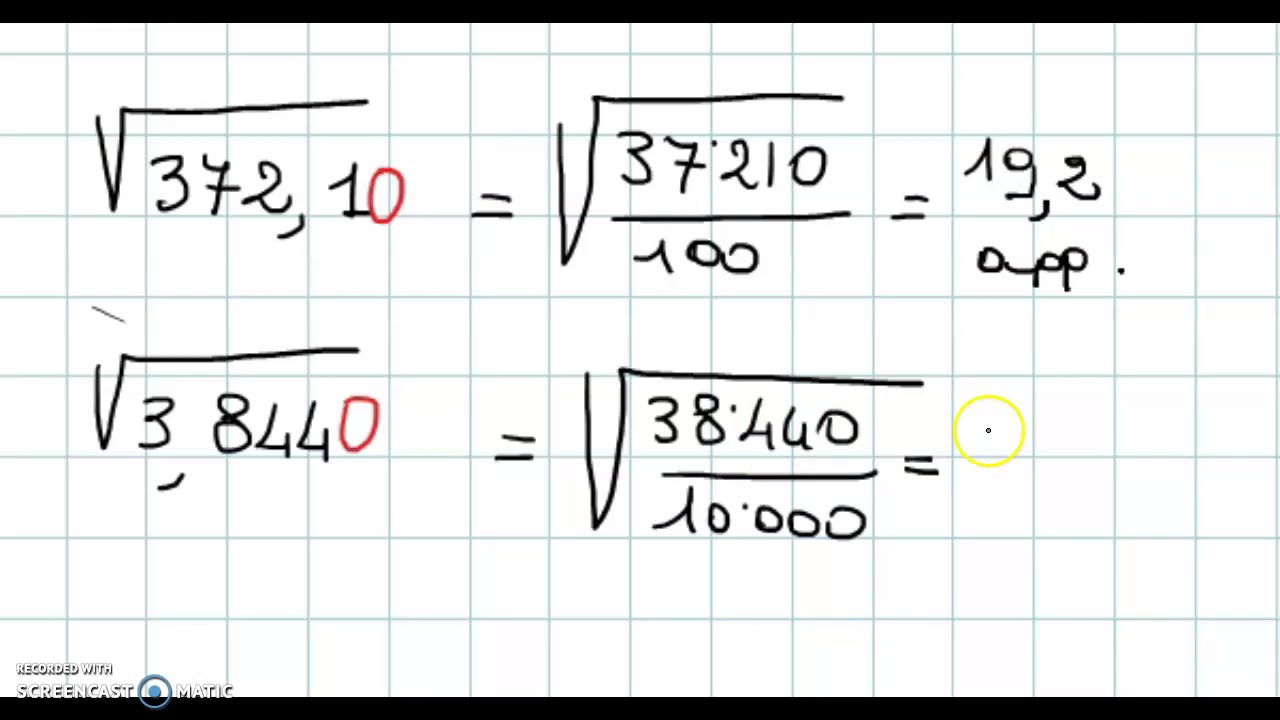 √372,10 = √37·210/100 = 19,2
app.
√3,8440 = √38·440/10·000 =
RECORDED WITH
SCREENCAST MATIC